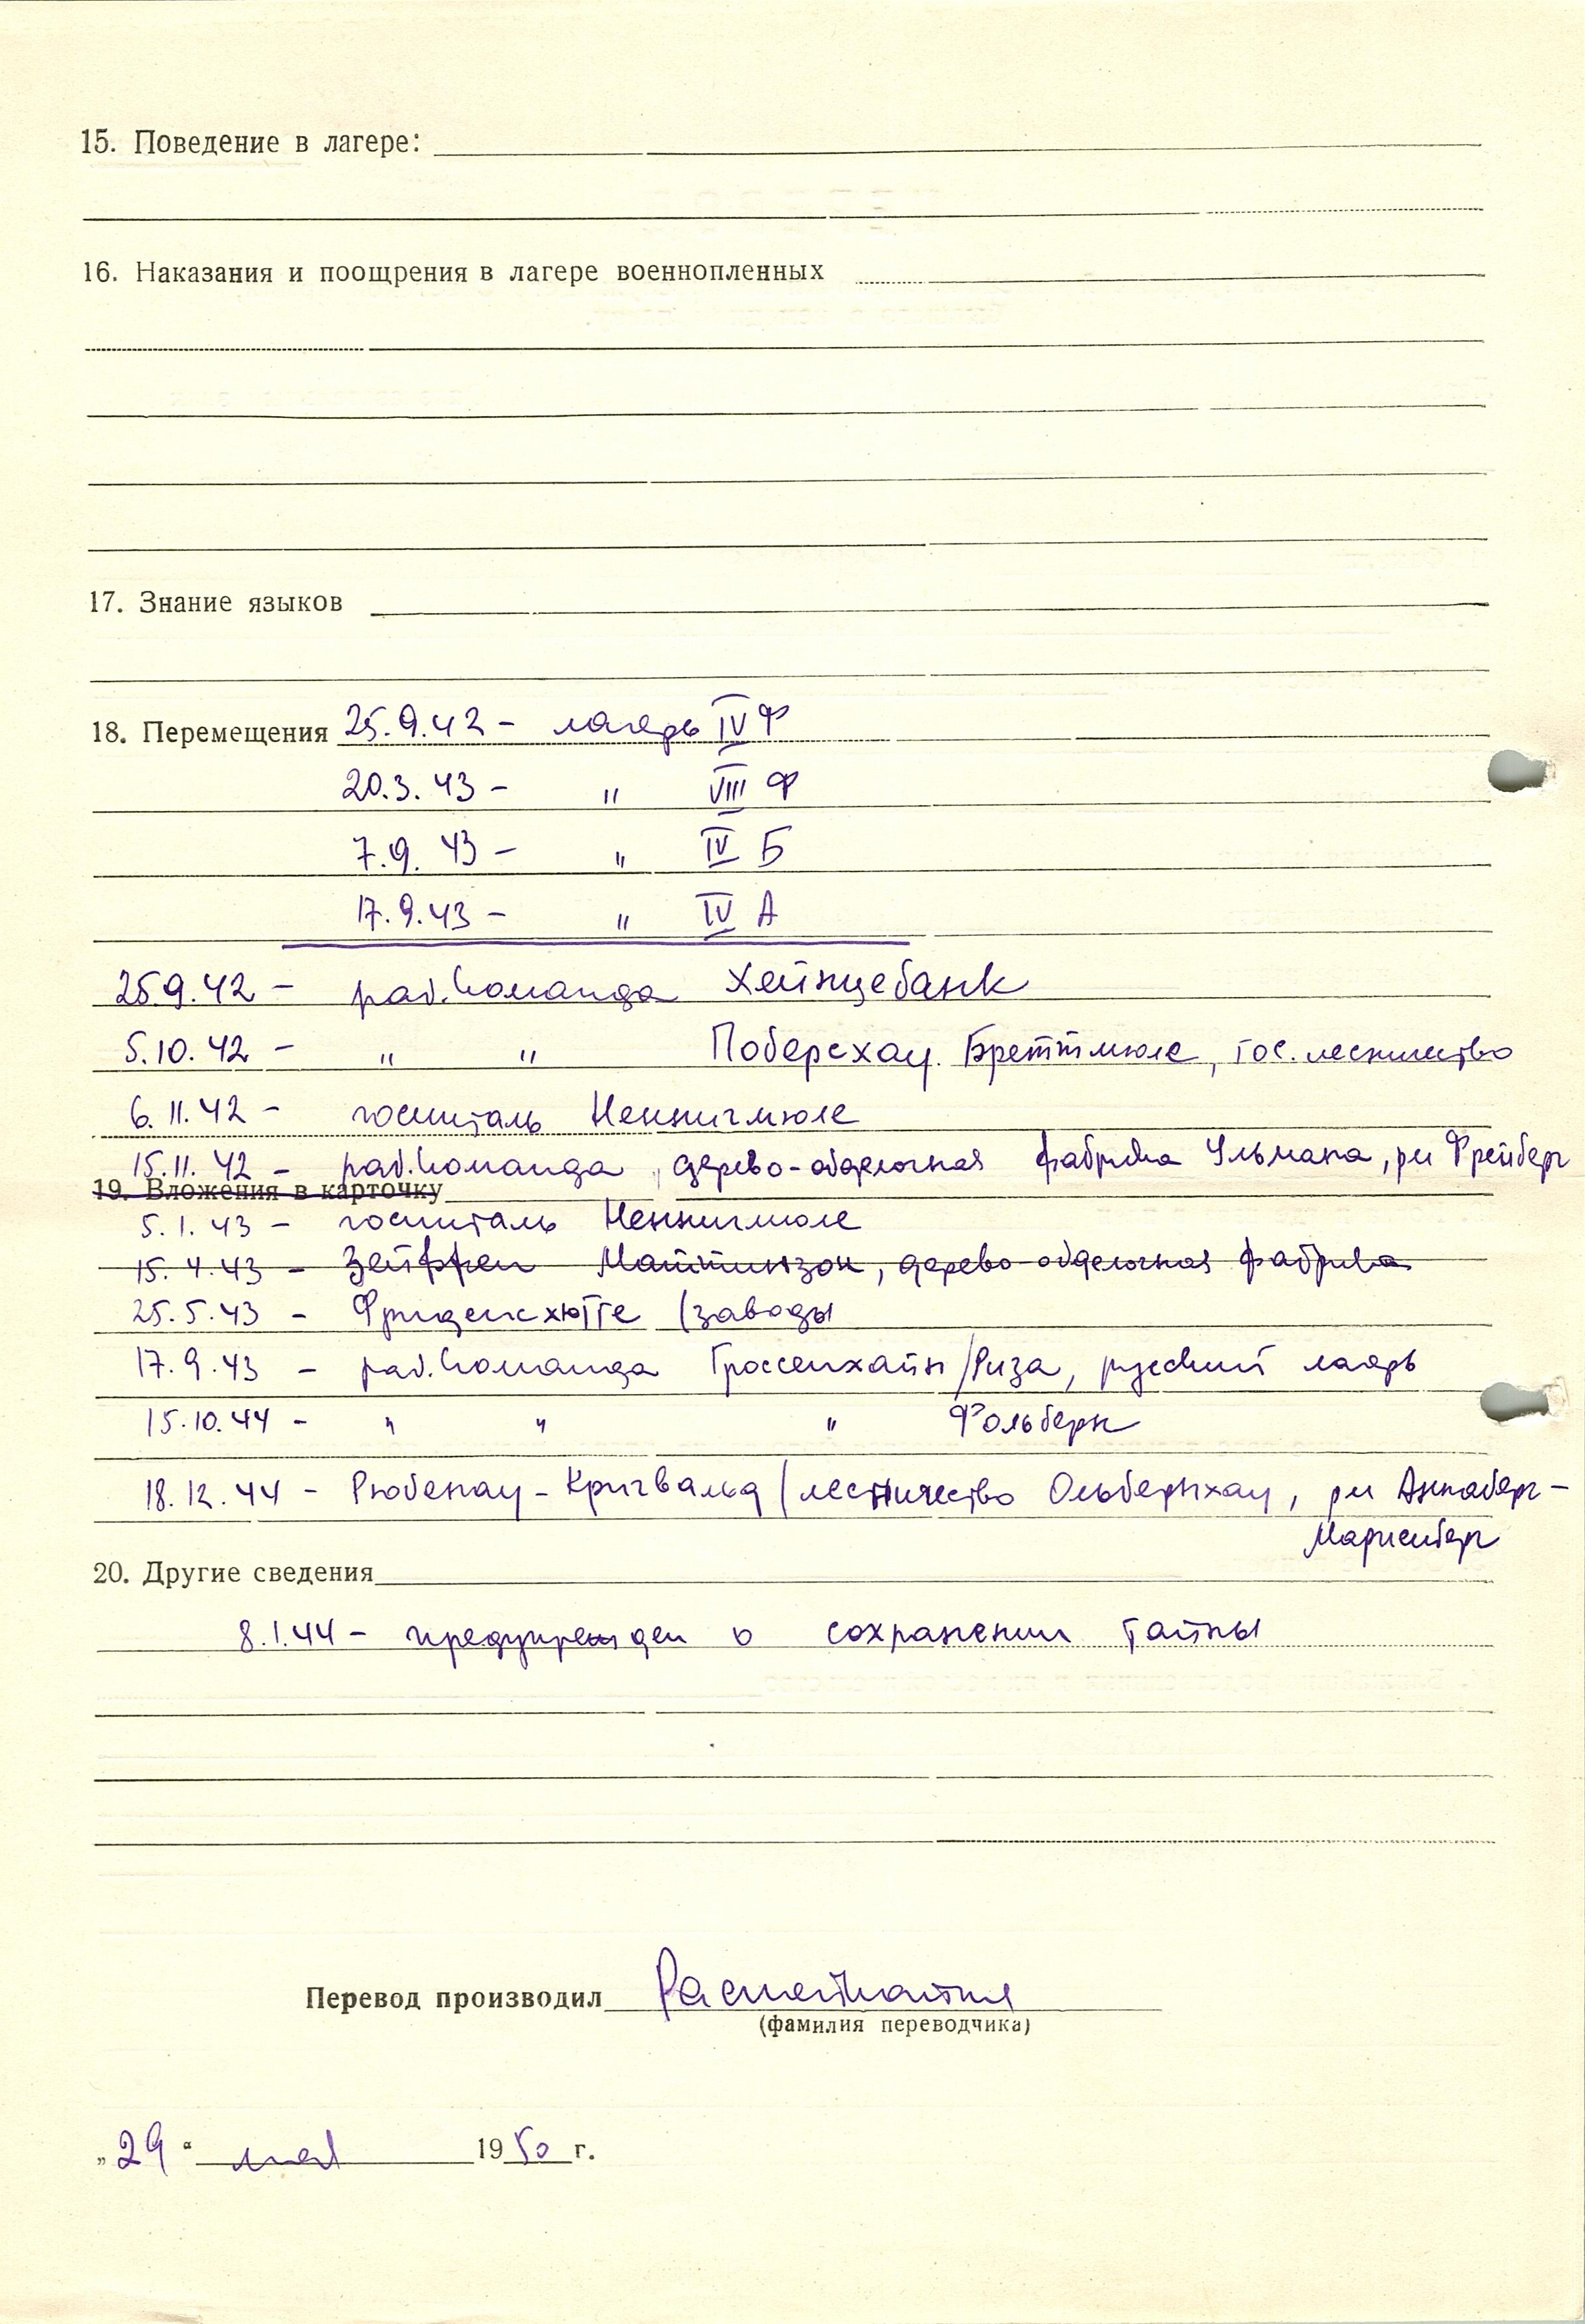 15. Поведение в лагере:
16. Наказания и поощрения в лагере военнопленных
17. Знание языков
18. Перемещения 25.9.42 - лагерь IV Ф
20.3.43 - " VIII Ф
7.9.43 - " IV Б
17.9.43 - " IV А
25.9.42 - раб.команда Хейнцебанк
5.10.42 - " " Поберсхау. Бреттмюле, гос. лесничество
6.11.42 - госпиталь Неннигмюле
15.11.42 - раб.команда, дерево-обделочная фабрика Ульмана, рн Фрейберг
19. Вложения в карточку
5.1.43 - госпиталь Неннигмюле
15.4.43 - Зейффен Маттинзон, дерево-обделочная фабрика
25.5.43 - Фриденсхютте (заводы
17.9.43 - раб.команда Гроссенхайн/Риза, русский лагерь
15.10.44 - " " " Фольберн
18.12.44 - Рюбенау-Кригвальд (лесничество Ольбернхау, рн Аннаберг-
Мариенберг
20. Другие сведения
8.1.44 - предупрежден о сохранении тайны
Перевод производил
(фамилия переводчика)
„29" мая 1950 г.